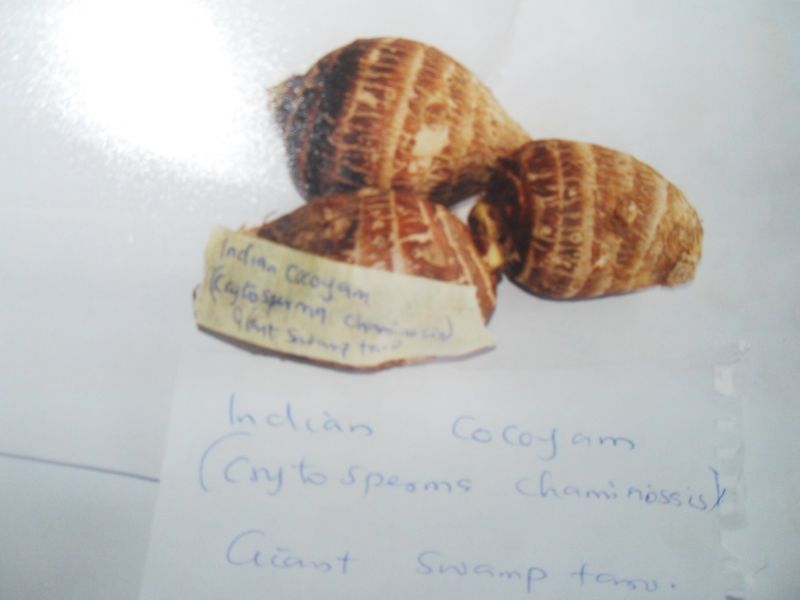 Indian Cocoyam
(Crytosperma Chaminossis)
Giant Swamp taro
Indian Cocoyam
(Crytosperms Chaminossis)
Giant Swamp taro.